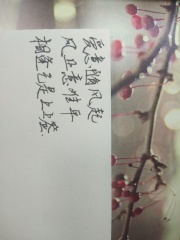 爱意随风起
风止意难平
相逢已是上上签